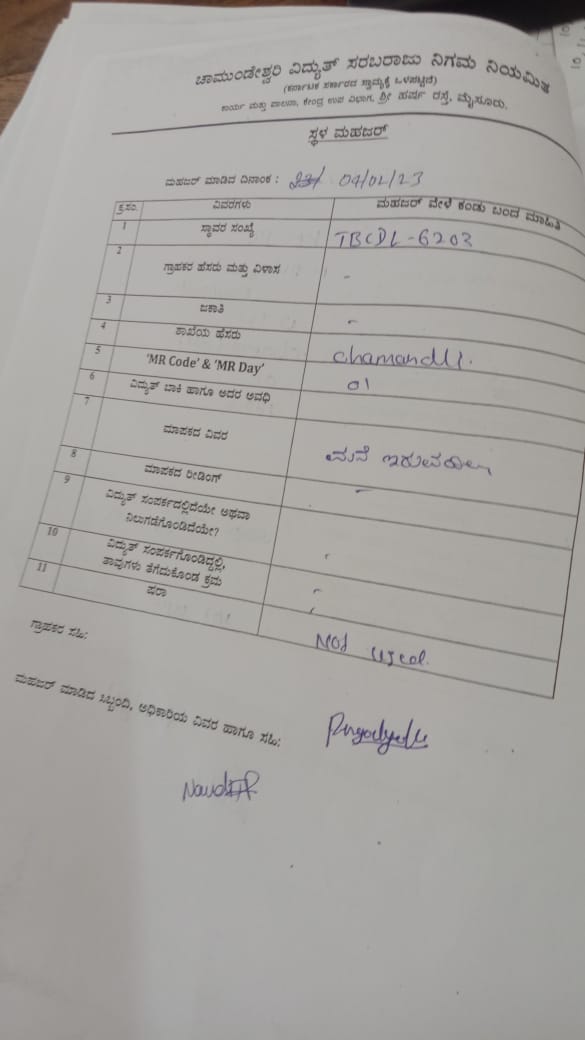 ಚಾಮುಂಡೇಶ್ವರಿ ವಿದ್ಯುತ್ ಸರಬರಾಜು ನಿಗಮ ನಿಯಮಿತ
(ಕರ್ನಾಟಕ ಸರ್ಕಾರದ ಸ್ವಾಮ್ಯಕ್ಕೆ ಒಳಪಟ್ಟಿದೆ)
ಕಾರ್ಯ ಮತ್ತು ಪಾಲನಾ, ಕೇಂದ್ರ ಉಪ ವಿಭಾಗ, ಶ್ರೀ ಹರ್ಷ ರಸ್ತೆ, ಮೈಸೂರು.
ಸ್ಥಳ ಮಹಜರ್
ಮಹಜರ್ ಮಾಡಿದ ದಿನಾಂಕ :
ಕ್ರ.ಸಂ. ವಿವರಗಳು ಮಹಜರ್ ವೇಳೆ ಕಂಡು ಬಂದ ಮಾಹಿತಿ
1 ಸ್ಥಾವರ ಸಂಖ್ಯೆ TBCDL-6203
2 ಗ್ರಾಹಕರ ಹೆಸರು ಮತ್ತು ವಿಳಾಸ -
3 ಜಕಾತಿ -
4 ಶಾಖೆಯ ಹೆಸರು
5 'MR Code' & 'MR Day' 01
6 ವಿದ್ಯುತ್ ಬಾಕಿ ಹಾಗೂ ಅದರ ಅವಧಿ
7 ಮಾಪಕದ ವಿವರ ಮನೆ
8 ಮಾಪಕದ ರೀಡಿಂಗ್ -
9 ವಿದ್ಯುತ್ ಸಂಪರ್ಕದಲ್ಲಿದೆಯೇ ಅಥವಾ
ನಿಲುಗಡೆಗೊಂಡಿದೆಯೇ?
10 ವಿದ್ಯುತ್ ಸಂಪರ್ಕಗೊಂಡಿದ್ದಲ್ಲಿ,
ತಾವುಗಳು ತೆಗೆದುಕೊಂಡ ಕ್ರಮ
11 ಷರಾ Not used.
ಗ್ರಾಹಕರ ಸಹಿ:
ಮಹಜರ್ ಮಾಡಿದ ಸಿಬ್ಬಂದಿ, ಅಧಿಕಾರಿಯ ವಿವರ ಹಾಗೂ ಸಹಿ: